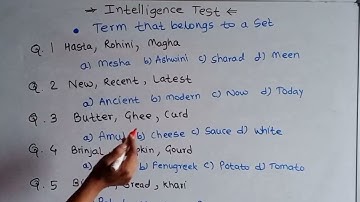 → Intelligence Test ←
• Term that belongs to a Set
Q. 1 Hasta, Rohini, Magha
a) Mesha b) Ashwini c) Sharad d) Meen
Q. 2 New, Recent, Latest
a) Ancient b) modern c) Now d) Today
Q. 3 Butter, Ghee, Curd
a) Amul b) Cheese c) Sauce d) White
Q. 4 Brinjal, Gourd
a) b) Fenugreek c) Potato d) Tomato
Q. 5 Bread, Khari